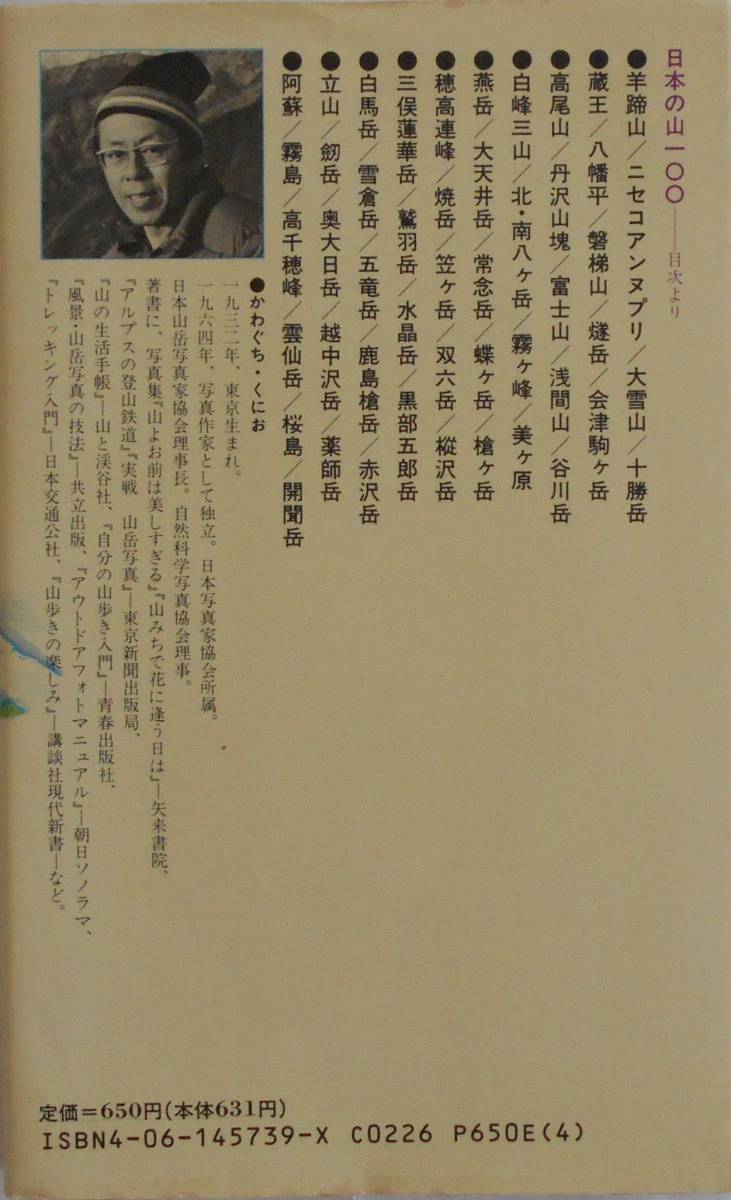 日本の山一〇〇――目次より
●羊蹄山／ニセコアンヌプリ／大雪山／十勝岳
●蔵王／八幡平／磐梯山／燧岳／会津駒ヶ岳
●高尾山／丹沢山塊／富士山／浅間山／谷川岳
●白峰三山／北・南八ヶ岳／霧ヶ峰／美ヶ原
●燕岳／大天井岳／常念岳／蝶ヶ岳／槍ヶ岳
●穂高連峰／焼岳／笠ヶ岳／双六岳／樅沢岳
●三俣蓮華岳／鷲羽岳／水晶岳／黒部五郎岳
●白馬岳／雪倉岳／五竜岳／鹿島槍岳／赤沢岳
●立山／劒岳／奥大日岳／越中沢岳／薬師岳
●阿蘇／霧島／高千穂峰／雲仙岳／桜島／開聞岳
●かわぐち・くにお
一九三二年、東京生まれ。
一九六四年、写真作家として独立。日本写真家協会所属。
日本山岳写真家協会理事長。自然科学写真協会理事。
著書に、写真集『山よお前は美しすぎる』『山みちで花に逢う日は』―矢来書院、
『アルプスの登山鉄道』『実戦　山岳写真』―東京新聞出版局、
『山の生活手帳』―山と渓谷社、『自分の山歩き入門』―青春出版社、
『風景・山岳写真の技法』―共立出版、『アウトドアフォトマニュアル』―朝日ソノラマ、
『トレッキング入門』―日本交通公社、『山歩きの楽しみ』―講談社現代新書―など。
定価＝650円(本体631円)
ISBN4-06-145739-X C0226 P650E(4)